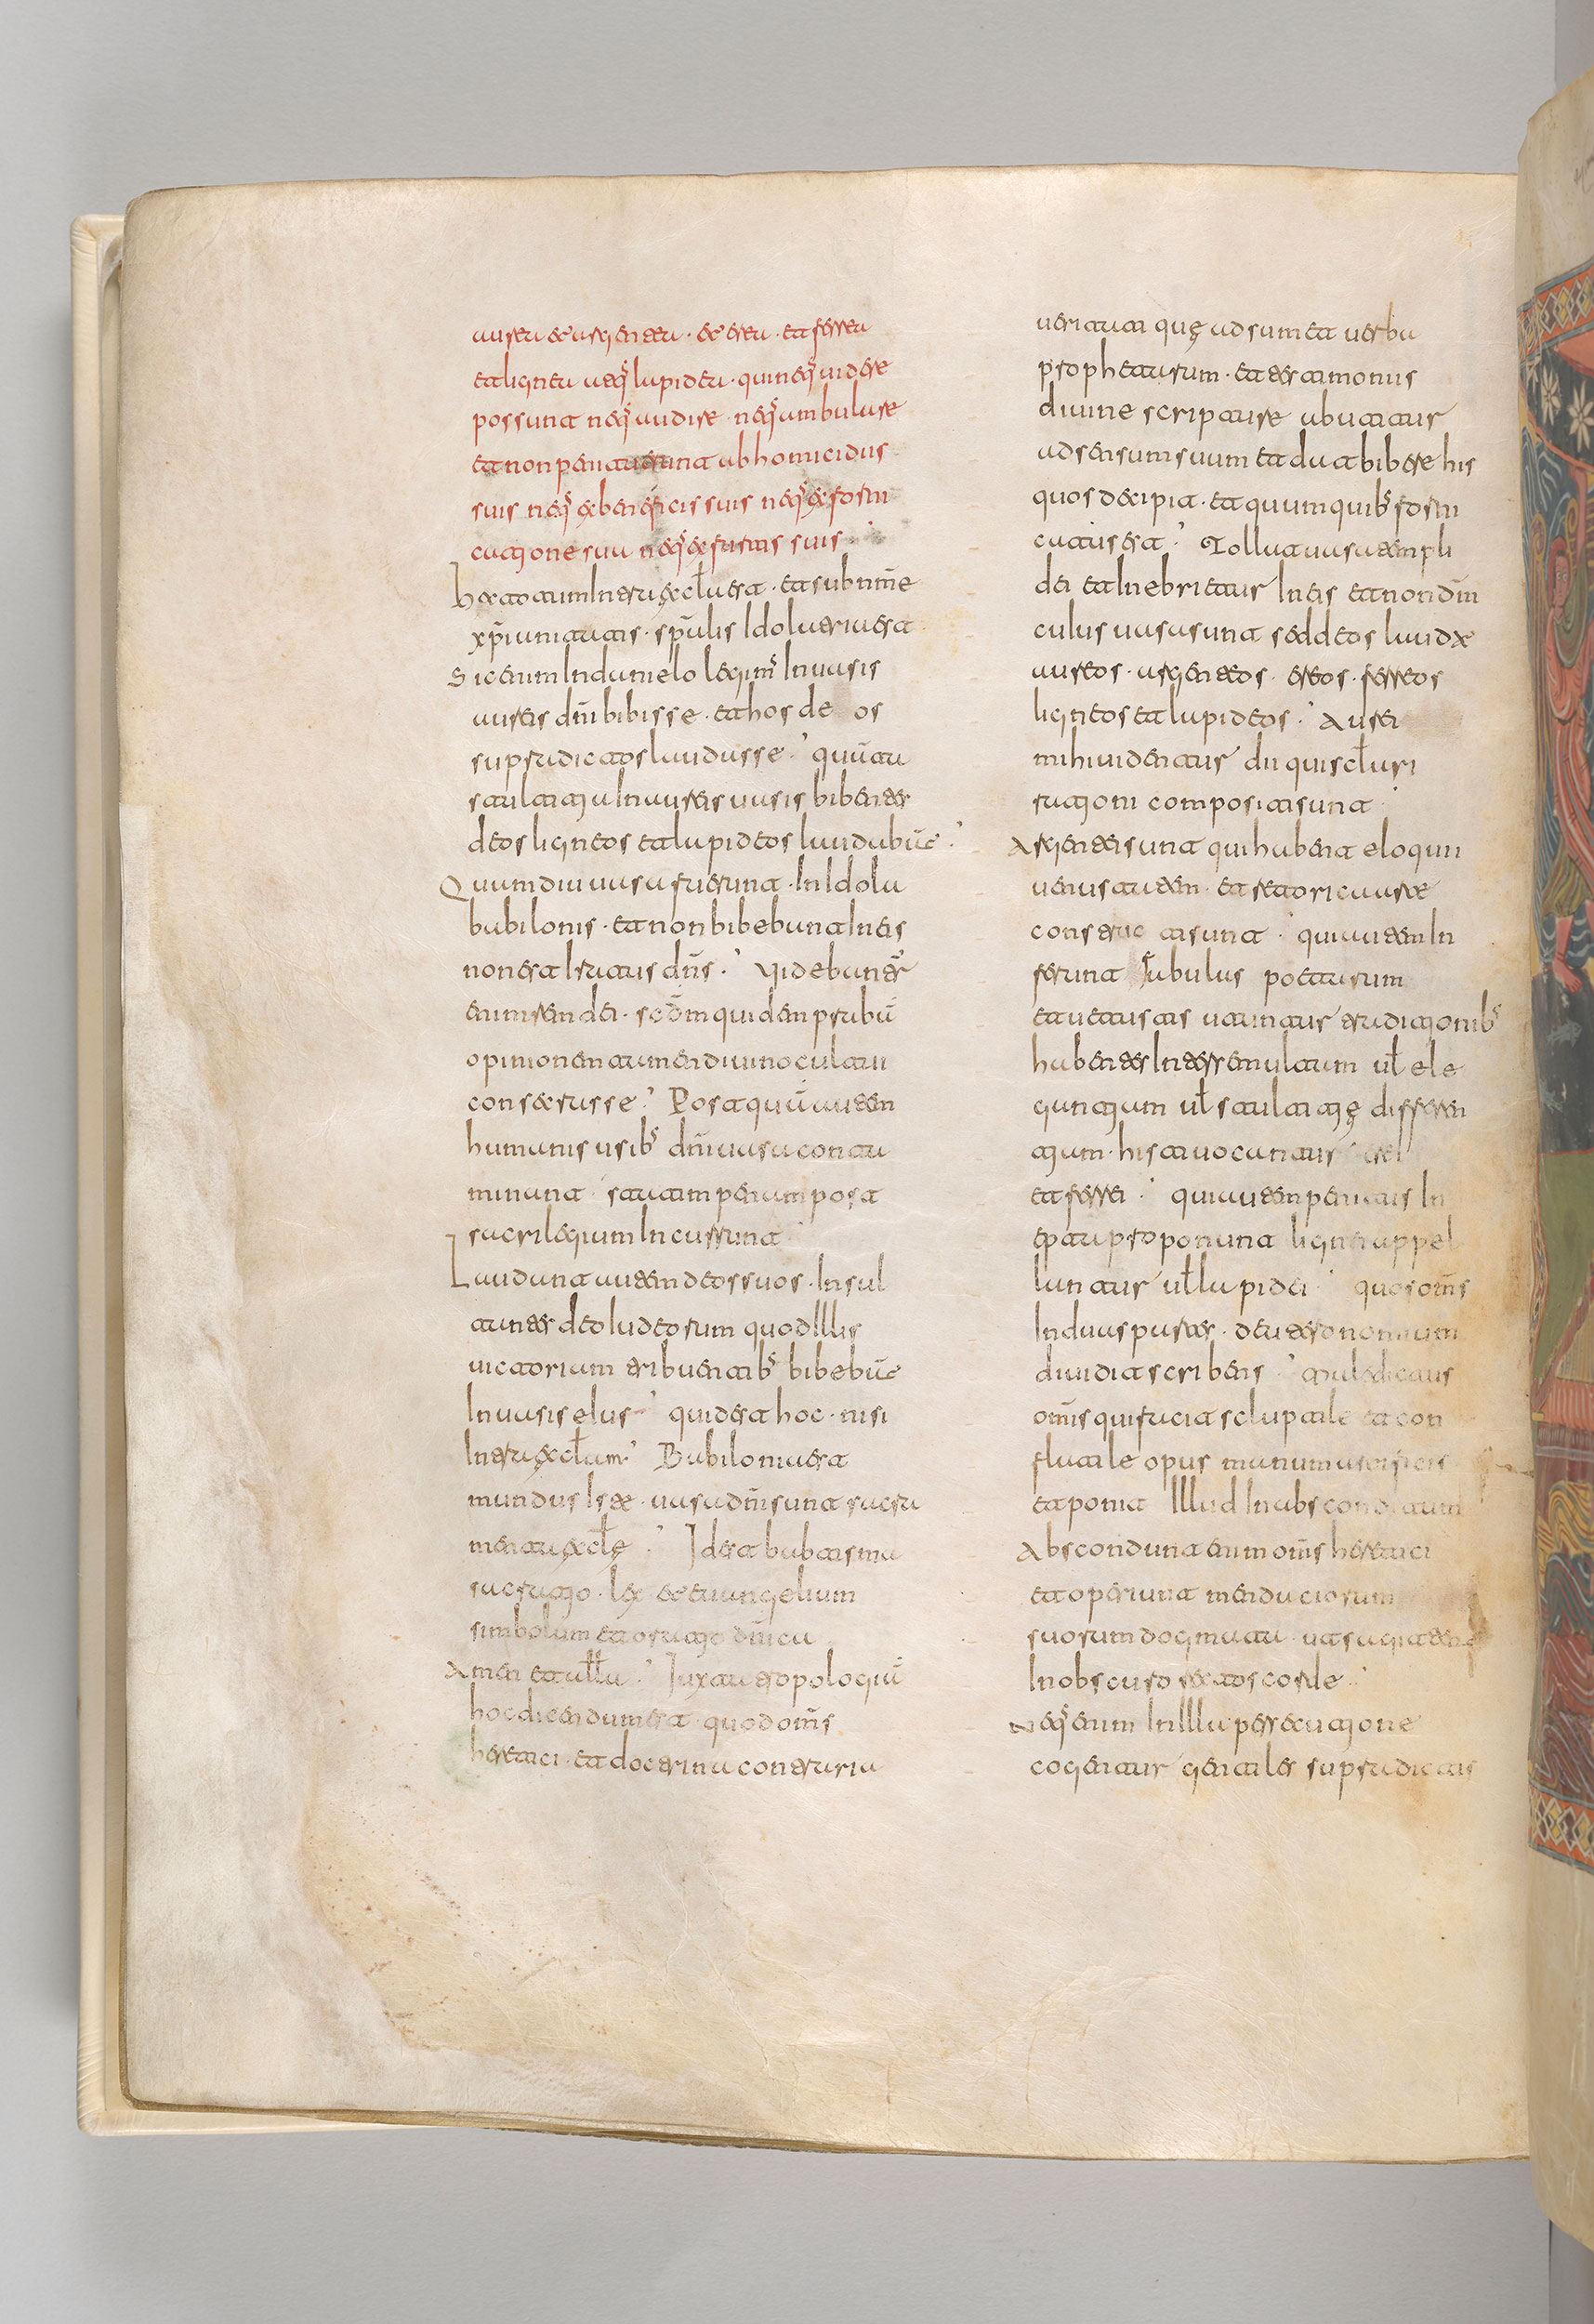 aurea et argentea · et erea · et ferrea
et lignea atq̄ lapidea · qui neq̄ uidere
possunt neq̄ audire · neq̄ ambulare
et non penituerunt ab homicidiis
suis neq̄ ex beneficiis suis neq̄ ex forni
catione sua neq̄ ex furtis suis
hec totum Intra ecl̄a est · et sub nm̄e
xp̄ianitatis · sp̄alis Idolatria est
Sic enim In danielo legim̄ In uasis
aureis dn̄i bibisse · et hos deos
supradictos laudasse · quā
stultitia In aureis uasis bibentes
deos ligneos et lapideos laudabn̄t
Quamdiu uasa fuerunt · In Idola
babilonis · et non bibebant In eis
non est Iratus dn̄s · Videbantr̄
enim rem dei · scd̄m quidem prabā
opinionem tamen diuino cultui
consecrasse · Postquā autem
humanis usib̄ dn̄i uasa conta
minant · statim penam post
sacrilegium Incurrunt
Laudant autem deos suos · Insul
tantes deo Iudeorum quod Illis
uictoriam tribuentib̄ bibebāt
In uasis eius · quid est hoc · nisi
Intra ecl̄am · Babilonia est
mundus Iste · uasa dn̄i sunt sacra
menta ecl̄ę · Id est babtisma
sacratio · lex et euangelium
simbolum et oratio dn̄ica
Amen et all̄a · Iuxta tropologiā
hoc dicendum est · quod om̄s
heretici · et doctrina contraria
ueritati quę adsumta uerba
prophetarum · et testimoniis
diuine scripture abutitur
ad sensum suum et dat bibere his
quos decipit · et quum quib̄ forni
catus est · Tollit uasa templi
dei et Inebrietur In eis et non dn̄i
culus uasa sunt sed deos laudat
aureos · argenteos · ereos · ferreos
ligneos et lapideos · Aurei
mihi uidentur dii qui secl̄ari
rationi compositi sunt
Argentei sunt qui habent eloquii
uenustatem · et retorica arte
constructi sunt · qui autem In
ferunt fabulas poetarum
et uetustis utuntur traditionib̄
habentes In terremulatum ul̄ ele
guntium ul̄ stultitię differen
tium · his tuocantur erei
et ferrei · qui autem penitus In
epta proponunt lignei appel
lantur ul̄ lapidei · quos om̄s
In duas partes · deuteronomium
diuidit scribens · Maledictus
om̄s qui facit sclubtile et con
flatile opus manum artificis
et ponit Illud In absconditum
Abscondunt enim om̄s heretici
et operiunt mendaciorum
suorum dogmata · ut sagittent
In obscuro rectos corde ·
Neq̄ enim In Illa persecutione
cogentur gentiles supradictis